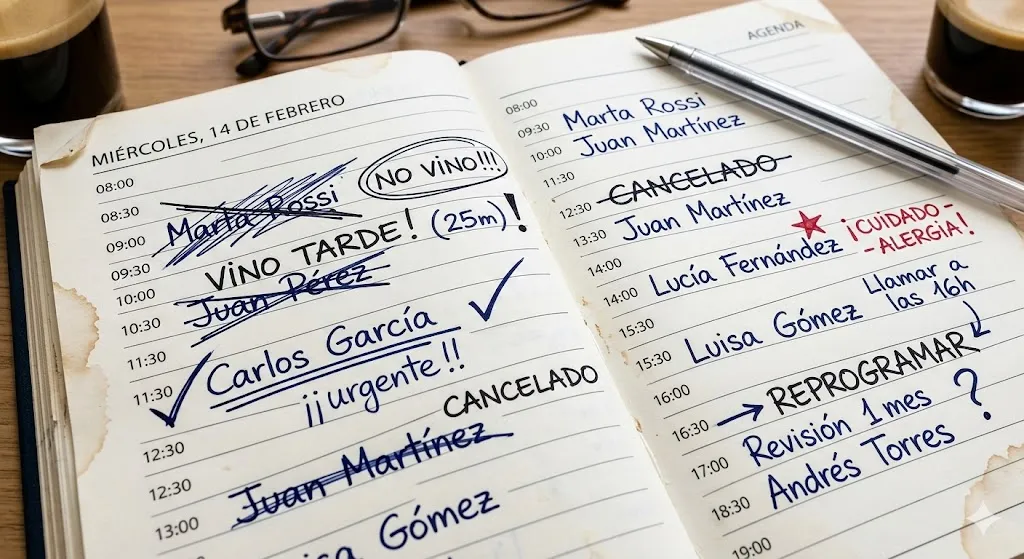 MIÉRCOLES, 14 DE FEBRERO
08:00
08:30 NO VINO!!!
09:00 Marta Rossi
09:30 VINO TARDE! (25m)!
10:00
10:30 Juan Pérez
11:30
11:30 Carlos García
¡¡urgente!!
12:30 CANCELADO
12:30
13:00 Juan Martínez
Gómez
AGENDA
08:00
09:30 Marta Rossi
10:00 Juan Martínez
11:30
12:30 CANCELADO
13:30 Juan Martínez
14:00
14:00 Lucía Fernández ¡CUIDADO -
- ALERGIA!
15:30
15:30 Luisa Gómez Llamar a
las 16h
16:00
16:30 → REPROGRAMAR
17:00 Revisión 1 mes ?
18:30 Andrés Torres
19:00